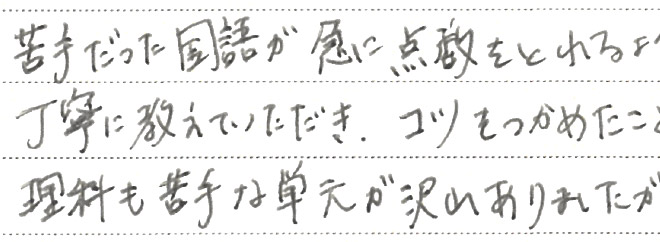 苦手だった国語が急に点数をとれるよ
丁寧に教えていただき、コツをつかめたこと
理科も苦手な単元が沢山ありましたが